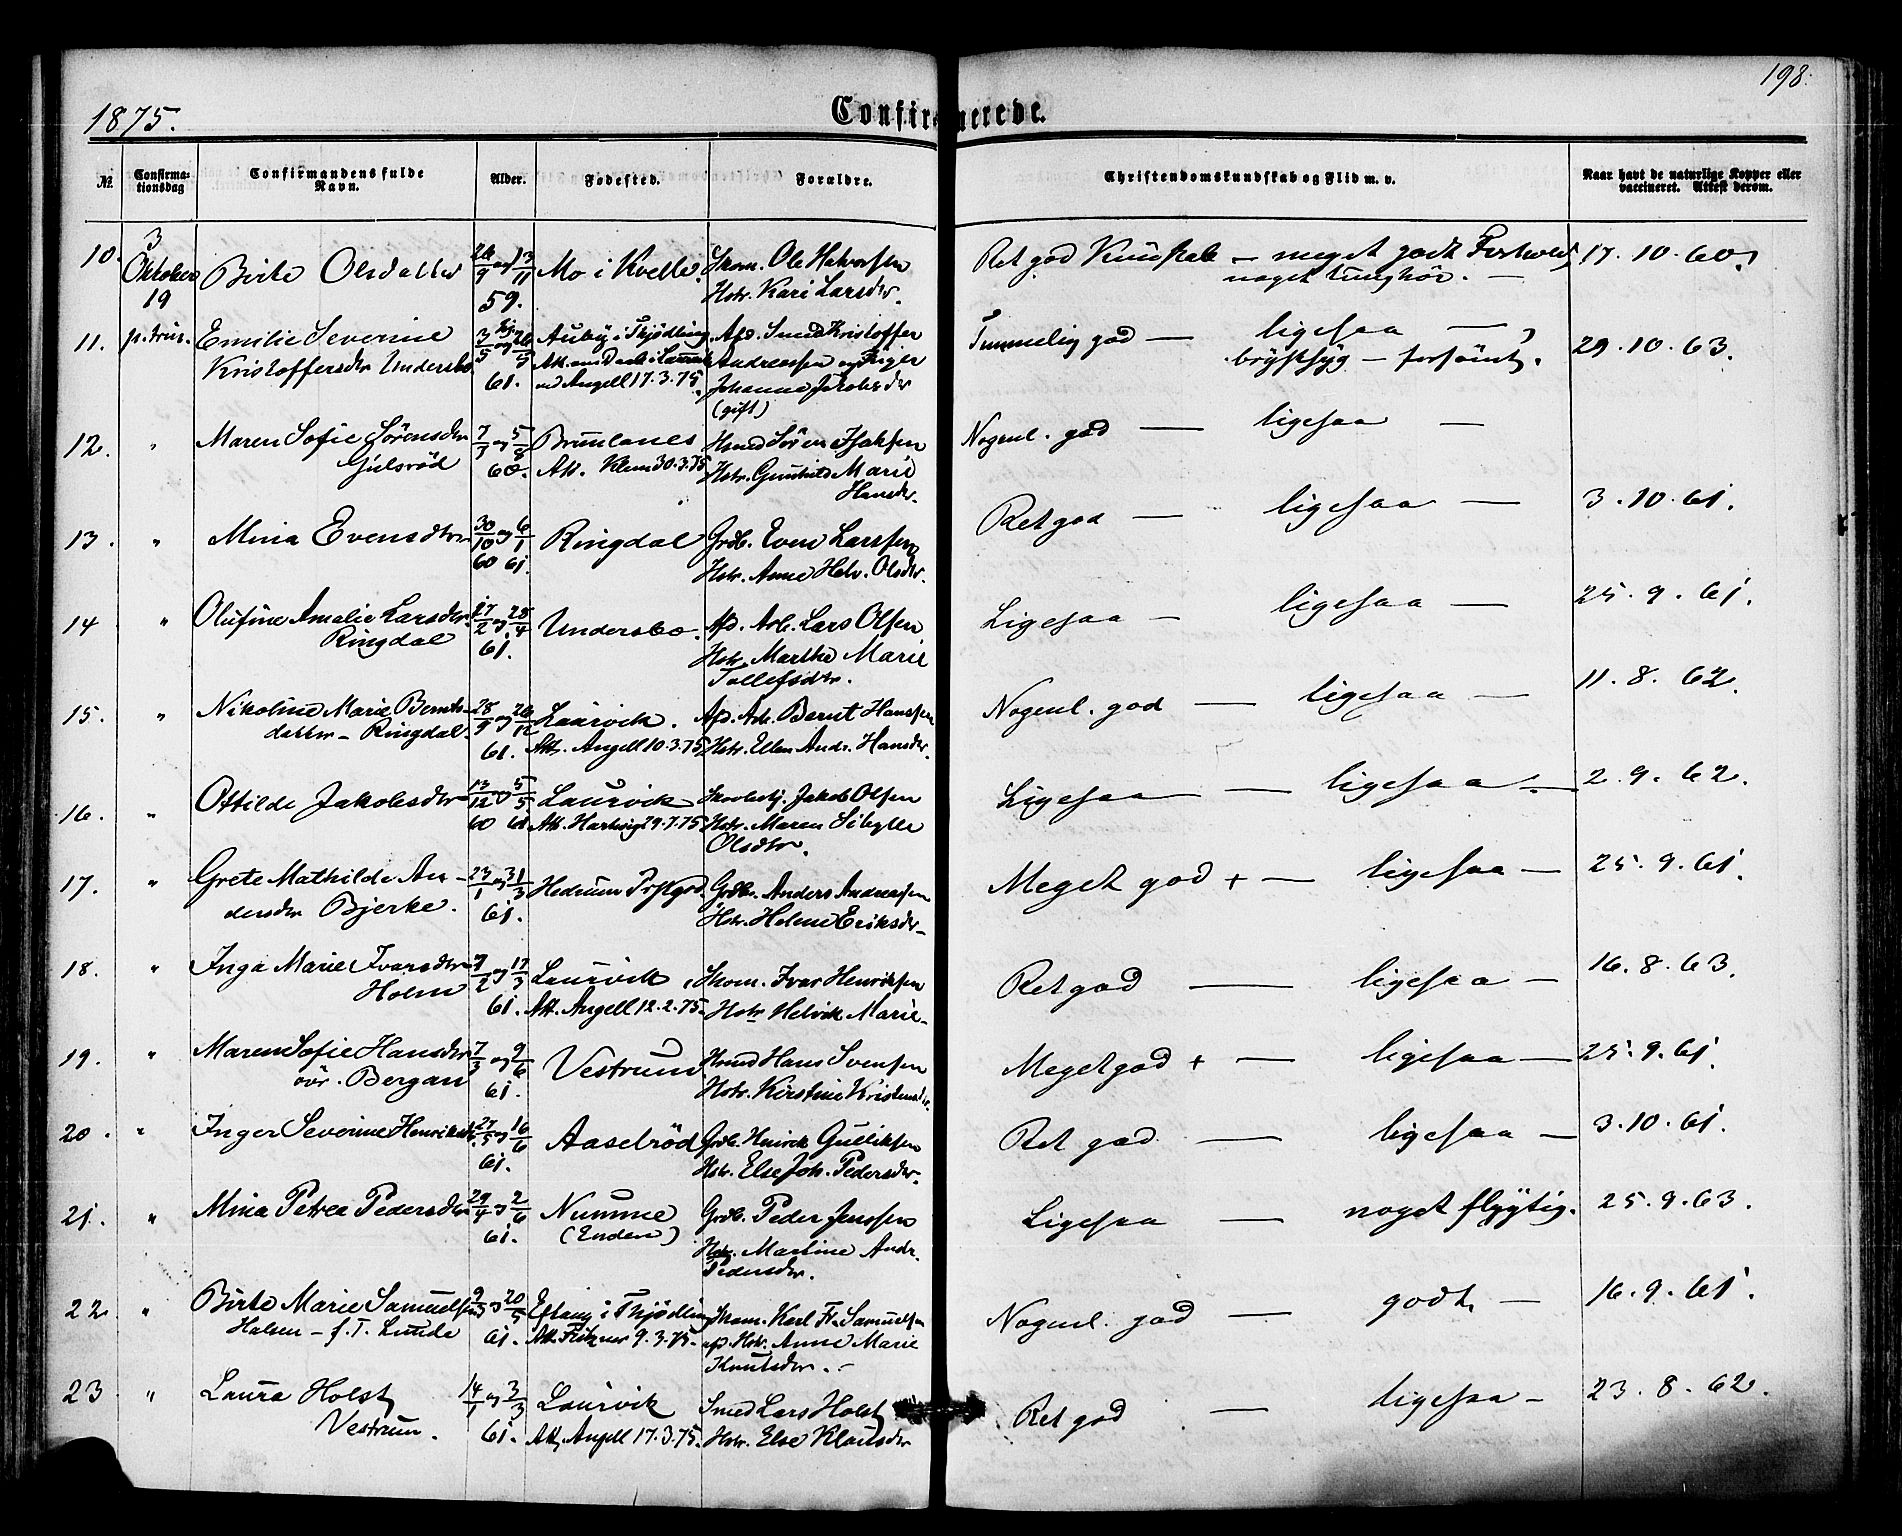 198.
1875.
Confirmerede.
№ Confirmationsdag Confirmandens fulde Navn. Alder. Fødested. Forældre. Christendomskundskab og Flid m. v. Naar havt de naturlige Kopper eller vaccineret. Attest derom.
10. 3 Oktober 19 Birte Olsdatter 26/9 og 13/11 59. Mo i Kvelle. Skom. Ole Halvorsen Hstr. Kari Larsdtr. Ret god Kundskab — meget godt Forhold, noget tunghør. — 17.10.60.
11. p. trin. Emilie Severine Kristoffersdtr Undersbo 3/5 og 26/5 61. Auby i Thjødling Att. om Daab i Laurvik ved Angell 17.3.75. Afd. Smed Kristoffer Andreassen og Pige Johanna Jakobsdtr (gift) Temmelig god — ligesaa — brystsyg — forsømt. 29.10.63.
12. " Maren Sofie Sørensdtr Gulsrød 7/3 og 5/8 60. Brunlanes Att. Klem 30.3.75 Hsmd Søren Isaksen Hstr. Gunhild Marie Hansdtr. Nogenl. god — ligesaa —
13. " Mina Evensdtr 30/10 60 og 6/1 61. Ringdal Grdb. Even Larssen Hstr. Anne Helv. Olsdtr. Ret god — ligesaa — 3.10.61.
14 " Olufine Amalie Larsdtr. Ringdal 27/2 og 28/4 61. Undersbo. Afd. Arb. Lars Olsen Hstr. Marthe Marie Tollefsdtr. Ligesaa — ligesaa — 25.9.61.
15. " Nikoline Marie Berntsdatter — Ringdal. 28/9 og 26/12 61. Laurvik. Att. Angell 10.3.75 Afd. Arb. Bernt Hanssen Hstr. Ellen Andr. Hansdtr. Nogenl. god — ligesaa — 11.8.62.
16. " Ottilde Jakobsdtr 13/12 60 og 5/5 61 Laurvik Att. Hartvig 29.7.75 Jakob Olsen Hstr. Maren Sibylle Olsdtr. Ligesaa — ligesaa — 2.9.62.
17. " Grete Mathilde Andersdtr Bjerke. 23/1 og 31/3 61. Hedrum Grdbr. Anders Andreassen Hstr. Helene Eriksdtr — Meget god + — ligesaa — 25.9.61.
18. " Inga Marie Ivarsdtr Holm 7/2 og 17/3 61. Laurvik Att. Angell 12.2.75. Skom. Ivar Henriksen Hstr Helvik Marie — Ret god — ligesaa — 16.8.63.
19. " Maren Sofie Hansdtr øvr. Bergan 7/3 og 9/6 61. Vestrum Hsmd Hans Svensen Hstr. Kirstine Kristensdtr. Meget god + — ligesaa — 25.9.61.
20. " Inger Severine Henriksdtr. 27/5 og 16/6 61. Aaselrød Grdb. Henrik Gulliksen Hstr. Else Joh. Pedersdtr. Ret god — ligesaa — 3.10.61.
21. " Mina Petrea Pedersdtr 29/4 og 2/6 61. Numme (Enden) Grdb. Peder Jenssen Hstr. Martine Andr. Pedersdtr. Ligesaa — noget flygtig. 25.9.63.
22 " Birte Marie Samuelsen Halsen — f. T. Lunde 9/3 og 20/5 61. Eftang i Thjødling Att. Fritzner 9.3.75 — Skom. Karl Fr. Samuelsen afd. Hstr. Anne Marie Knutsdtr. — Nogenl. god — godt — 16.9.61.
23 " Laura Holst, Vestrum. 14/1 og 3/3 61. Laurvik Att. Angell 17.3.75. Smed Lars Holst, Hstr. Else Klausdtr Ret god — ligesaa — 23.8.62.